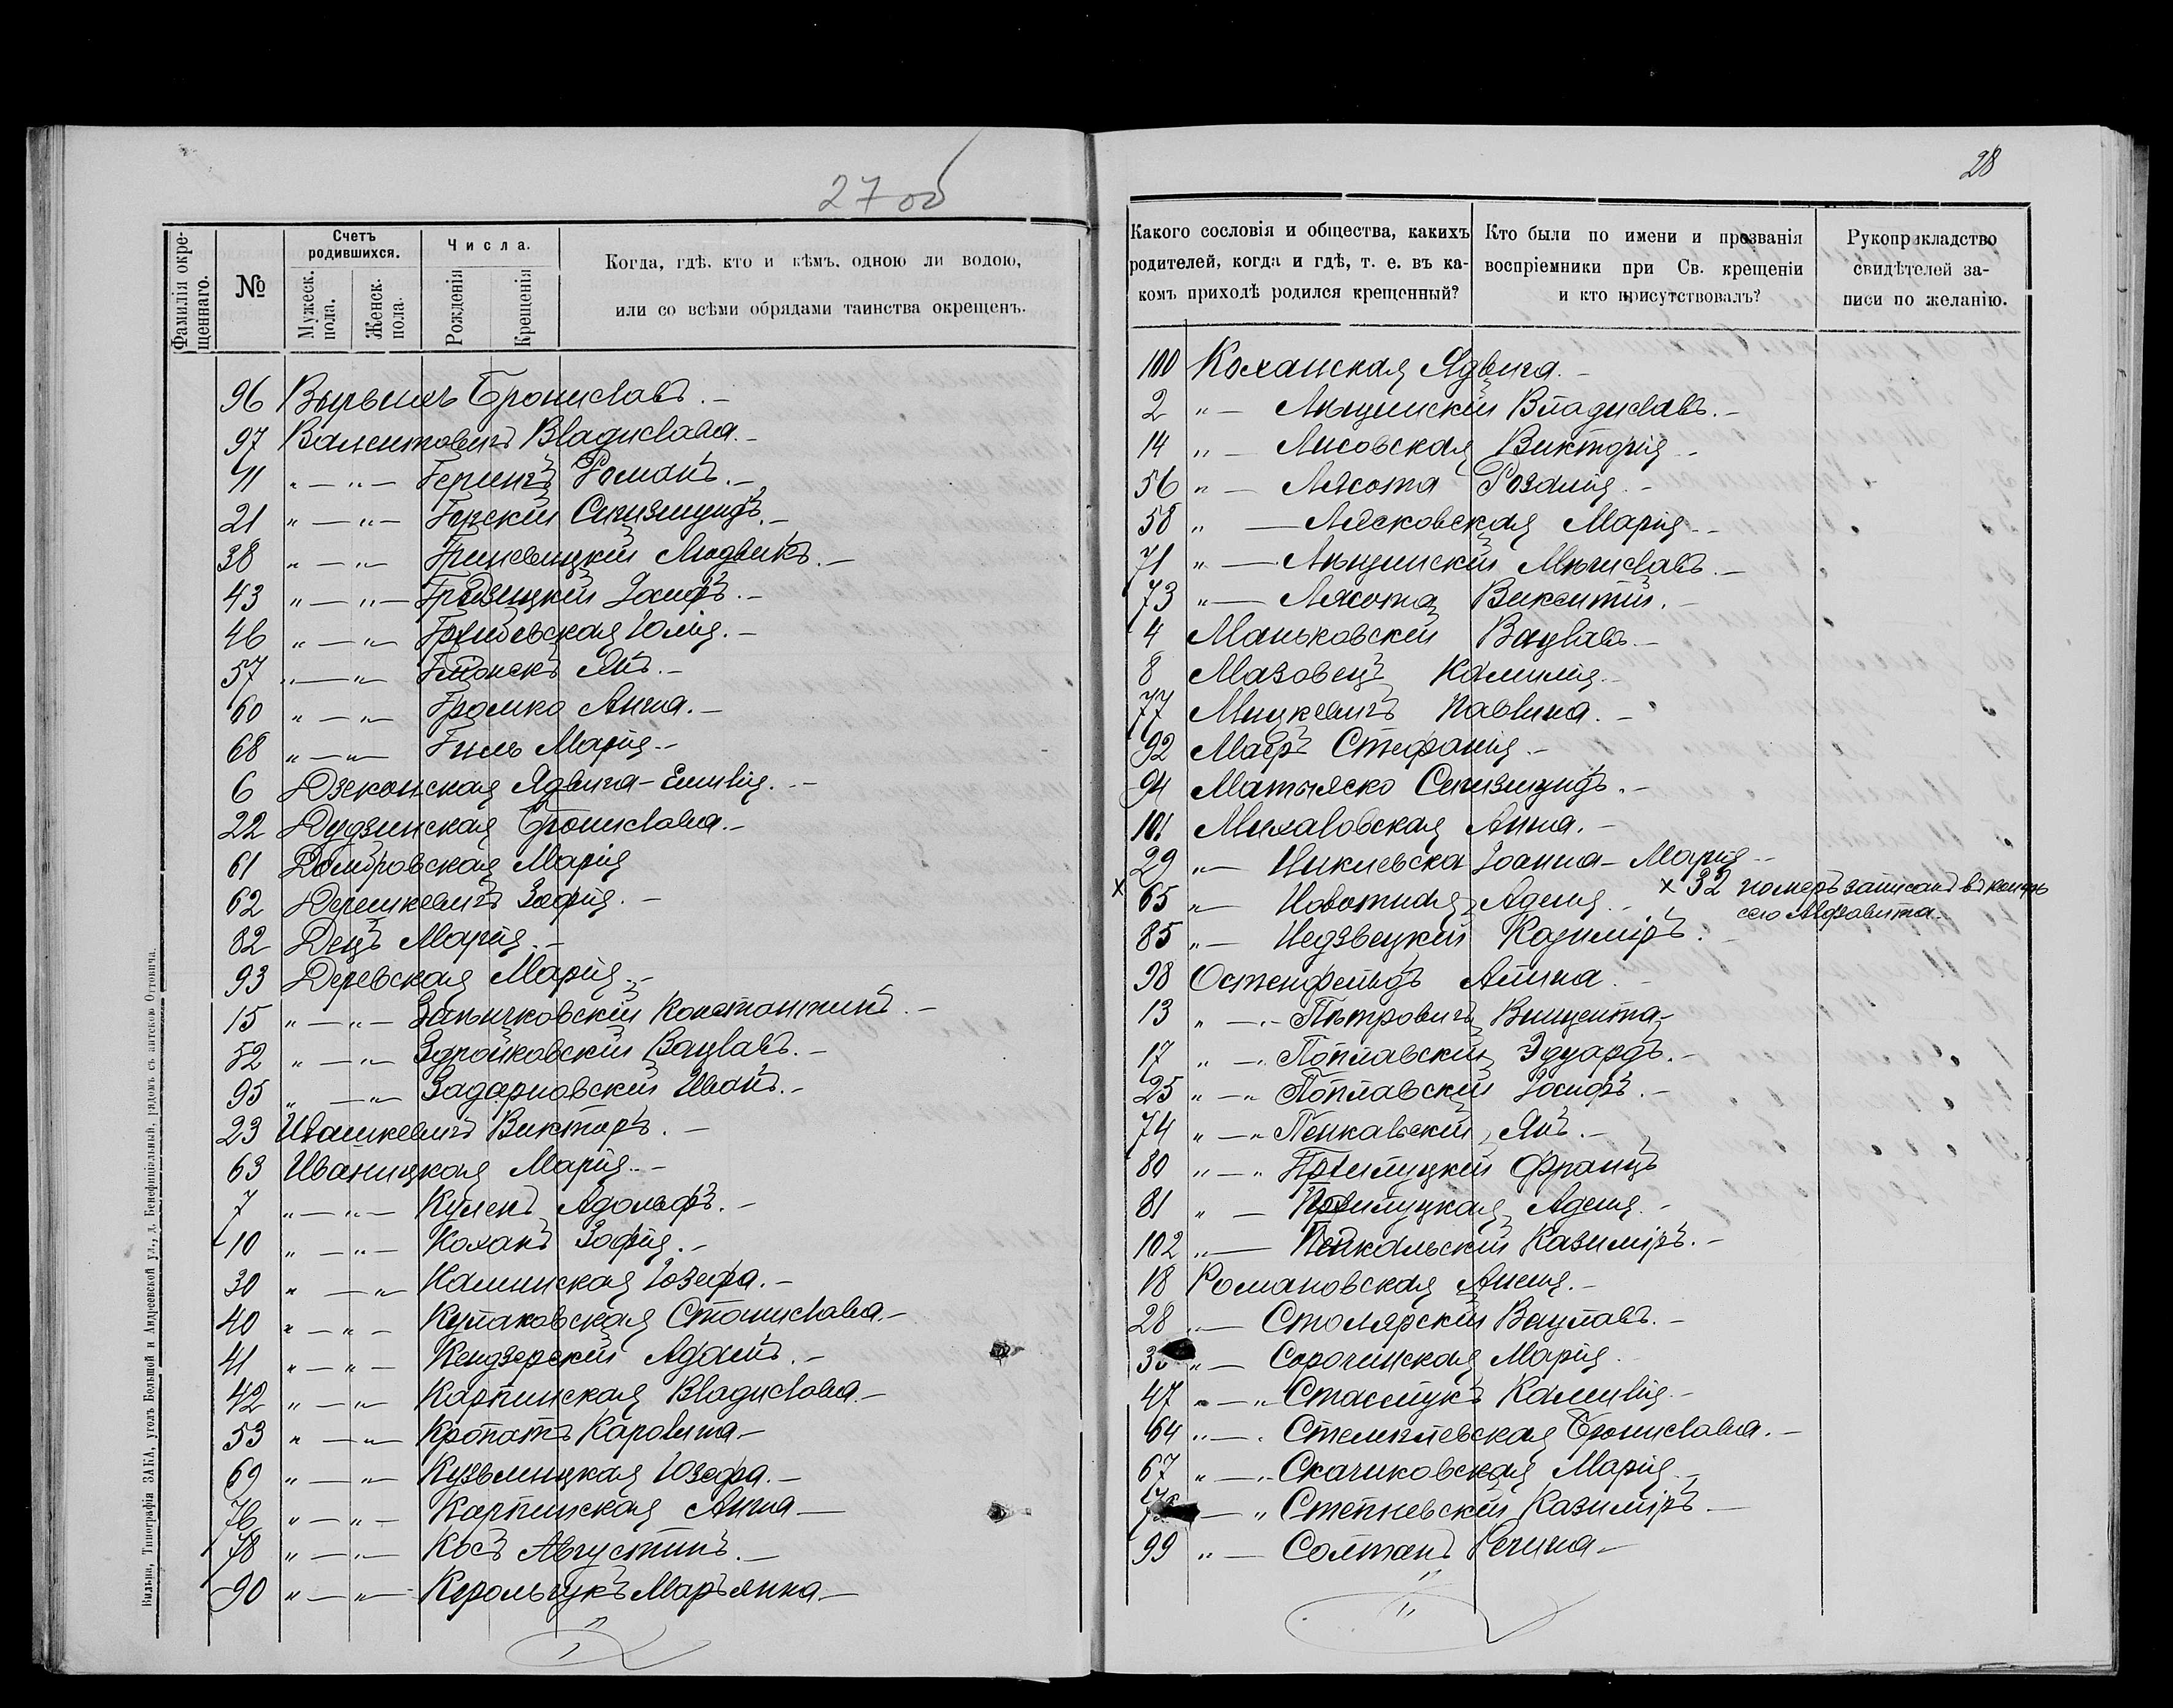 27 об
Фамилія окре-
щеннаго.
№
Счетъ
родившихся.
Мужеск.
пола.
Женск.
пола.
Числа.
Рожденія
Крещенія
Когда, гдѣ, кто и кѣмъ, одною ли водою,
или со всѣми обрядами таинства окрещенъ.
96 Вырвихъ Брониславъ. –
97 Валентовичъ Владислава. –
11 „ — „ — Герингъ Романъ. –
21 „ — „ — Герскій Сигизмундъ. –
38 „ — „ — Гриневицкій Людвикъ. –
43 „ — „ — Грязицкій Іосифъ. –
46 „ — „ — Юлія. –
57 „ — „ Янъ. –
60 „ — „ Громко Анна. –
68 „ — „ Гиль Марія –
6 Дзеконская Ядвига-Емилія. –
22 Дудзинская Бронислава. –
61 Домбровская Марія
62 Дерешкевичъ Зофія. –
82 Децъ Марія. –
93 Деревская Марія –
15 „ — „ — Запычковскій Константинъ. –
52 „ — „ Здройковскій Вацлавъ. –
95 „ — „ Задарновскій Иванъ. –
23 Ивашкевичъ Викторъ. –
63 Иваницкая Марія. –
7 „ — „ — Кулекъ Адольфъ. –
10 „ — „ — Коханъ Зофія. –
30 „ — „ Каминская Юзефа. –
40 „ — „ — Кулаковская Станислава. –
41 „ — „ — Кендзерскій Адамъ. –
42 „ — „ Карпинская Владислава –
53 „ — „ Кропатъ Каролина –
69 „ — „ Кузьмицкая Юзефа. –
76 „ — „ — Карпинская Анна —
78 „ — „ Косъ Августинъ. –
90 „ — „ — Корольчукъ Марьянна –
Вильна, Типографія ЗАКА, уголъ Большой и Андреевской ул., д. Бенефиціальный, рядомъ съ аптекою Оттовича.
28
Какого сословія и общества, какихъ
родителей, когда и гдѣ, т. е. въ ка-
комъ приходѣ родился крещенный?
Кто были по имени и прозванія
воспріемники при Св. крещеніи
и кто присутствовалъ?
Рукоприкладство
свидѣтелей за-
писи по желанію.
100 Коханская Ядвига. –
2 „ — Лыщинскій Владиславъ. –
14 „ — Лисовская Викторія –
56 „ — Ляхота Розалія –
58 „ — Лясковская Марія –
71 „ — Лыщинскій Мѣчиславъ. –
73 „ — Ляхота Викентій. –
4 Маньковскій Вацлавъ. –
8 Мазовецъ Камилія –
77 Мицкевичъ Павлина. –
92 Маеръ Стефанія –
94 Матыяско Сигизмундъ. –
101 Михаловская Анна. –
29 „ — Никлевска Іоанна-Марія –
x 65 „ — Новотная Аделя – x 32 номеръ записанъ въ концѣ
сего Алфавита.
85 „ — Недзвецкій Казиміръ. –
98 Остенфельдъ Алина –
13 „ — „ Пѣтровичъ Винцента –
17 „ — „ Поплавскій Эдуардъ. –
25 „ — „ Поплавскій Іосифъ. –
74 „ — „ Пенкавскій, Янъ. –
80 „ — „ Прилуцкій Францъ
81 „ — Прилуцкая Аделя. –
102 „ — Пенкальскій Казиміръ. –
18 Романовская Анеля. –
28 „ — Столярскій Вацлавъ. –
„ — Сорочинская Марія –
47 „ — „ Стасюкъ Камилія –
64 „ — „ Стемплевская Бронислава. –
67 „ — „ Скачковская Марія –
— „ Степневскій Казиміръ –
99 „ — Солтанъ Регина –